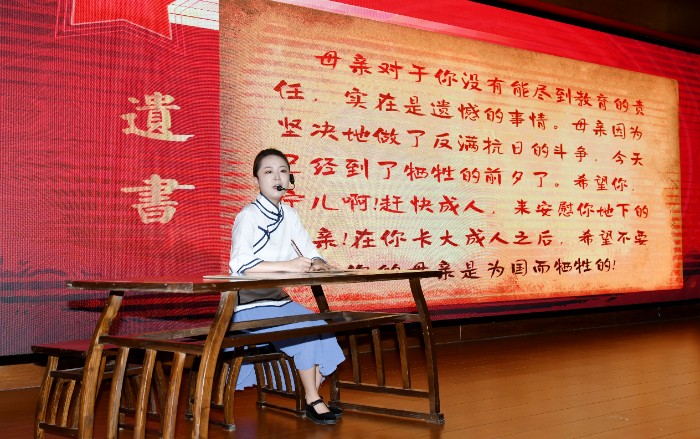 遺書
母亲对于你没有能尽到教育的责
任，实在是遗憾的事情。母亲因为
坚决地做了反满抗日的斗争，今天
经到了牺牲的前夕了。希望你，
儿啊!赶快成人，来安慰你地下的
亲!在你长大成人之后，希望不要
的母亲是为国而牺牲的!